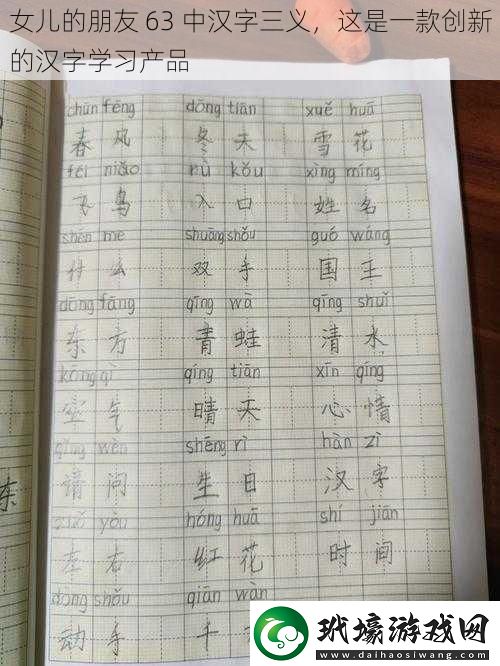 女儿的朋友 63 中汉字三义，这是一款创新
的汉字学习产品
chūn fēng dōng tiān xuě huā
春 风 冬 天 雪 花
fēi niǎo rù kǒu xìng míng
飞 鸟 入 口 姓 名
shén me shuāng shǒu guó wáng
什 么 双 手 国 王
dōng fāng qīng wā qīng shuǐ
东 方 青 蛙 清 水
kōng qì qíng tiān xīn qíng
空 气 晴 天 心 情
qǐng wèn shēng rì hàn zì
请 问 生 日 汉 字
东
zuǒ yòu hóng huā shí jiān
左 右 红 花 时 间
dòng shǒu qiān wàn
动 手 千
玳壕游戏网
www.daihaosiwang.com